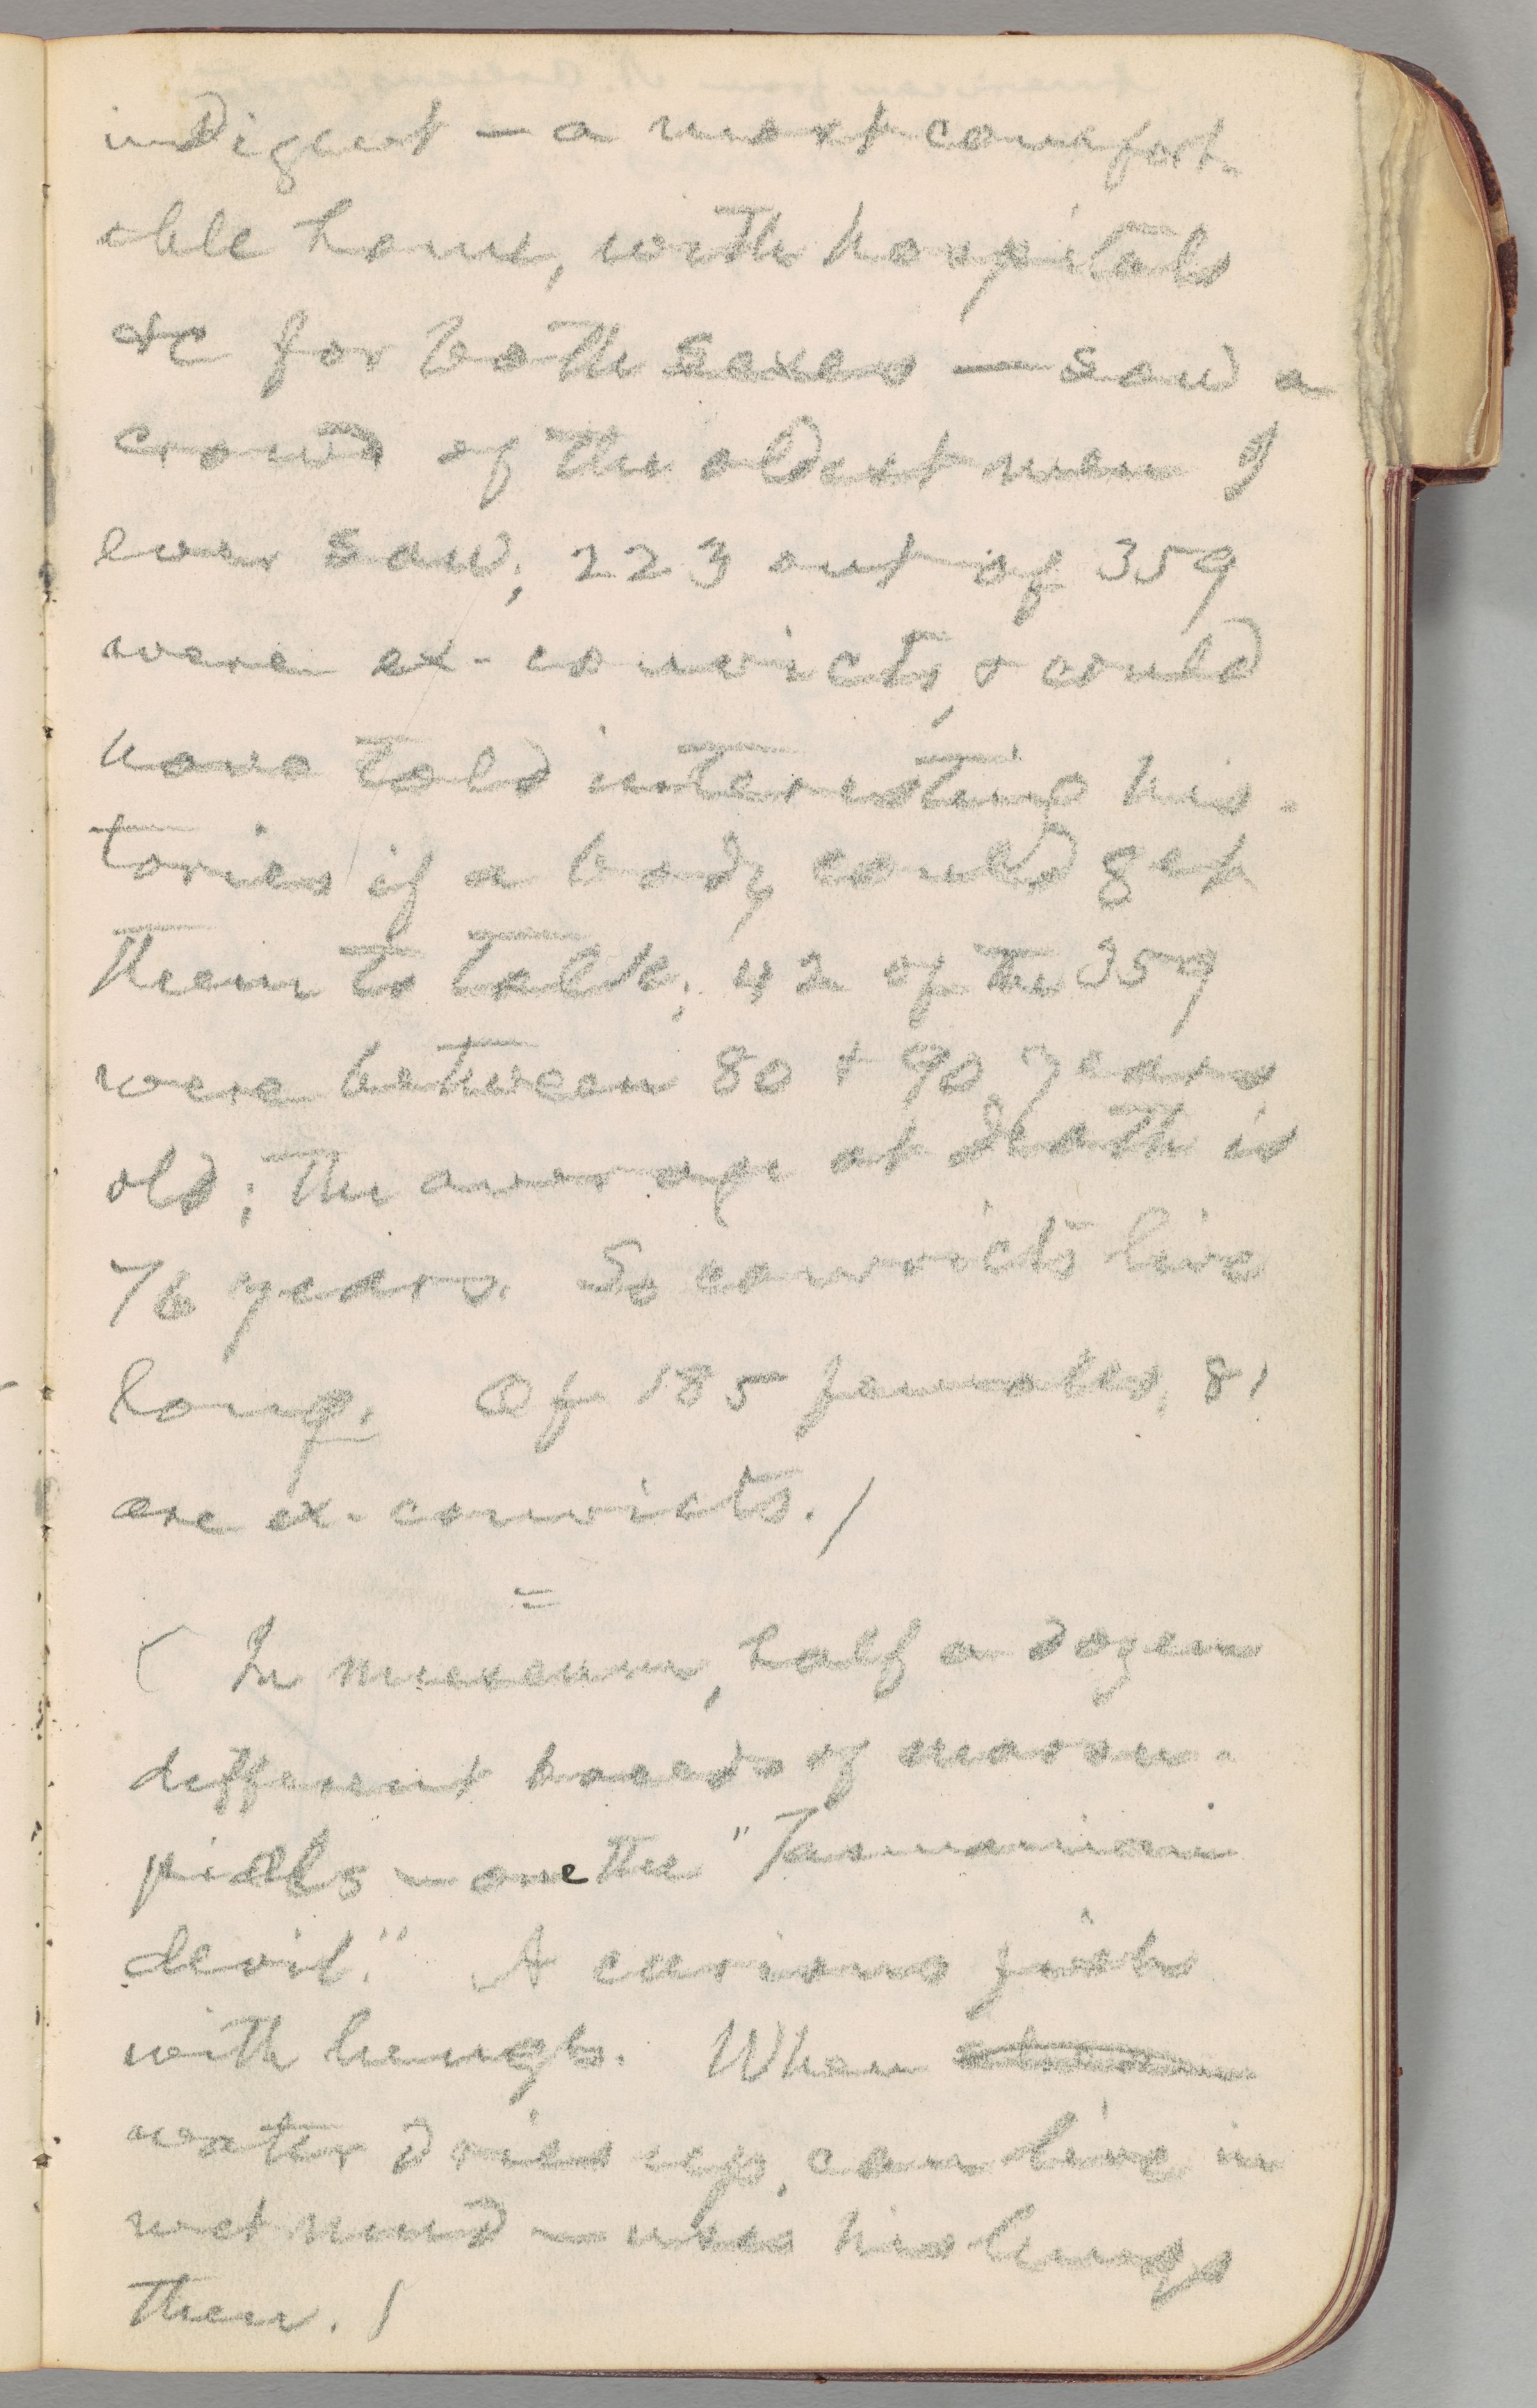 indigent — a most comfort-
able home, with hospitals
&c for both sexes — saw a
crowd of the oldest men I
ever saw; 223 out of 359
were ex-convicts, & could
have told interesting his-
tories if a body could get
them to talk; 42 of the 359
were between 80 & 90 years
old; the average at death is
76 years. So convicts live
long. Of 185 females, 81
are ex-convicts. /
=
( In museum, half a dozen
different breeds of marsu-
pials — one the "Tasmanian
devil." A curious fish
with lungs. When
water dries up, can live in
wet mud — uses his lungs
then. /